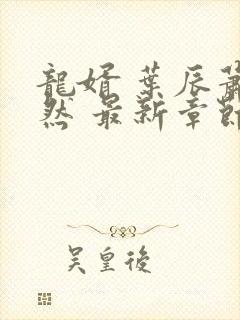 龍婿 葉辰蕭
然 最新章節
吳皇後